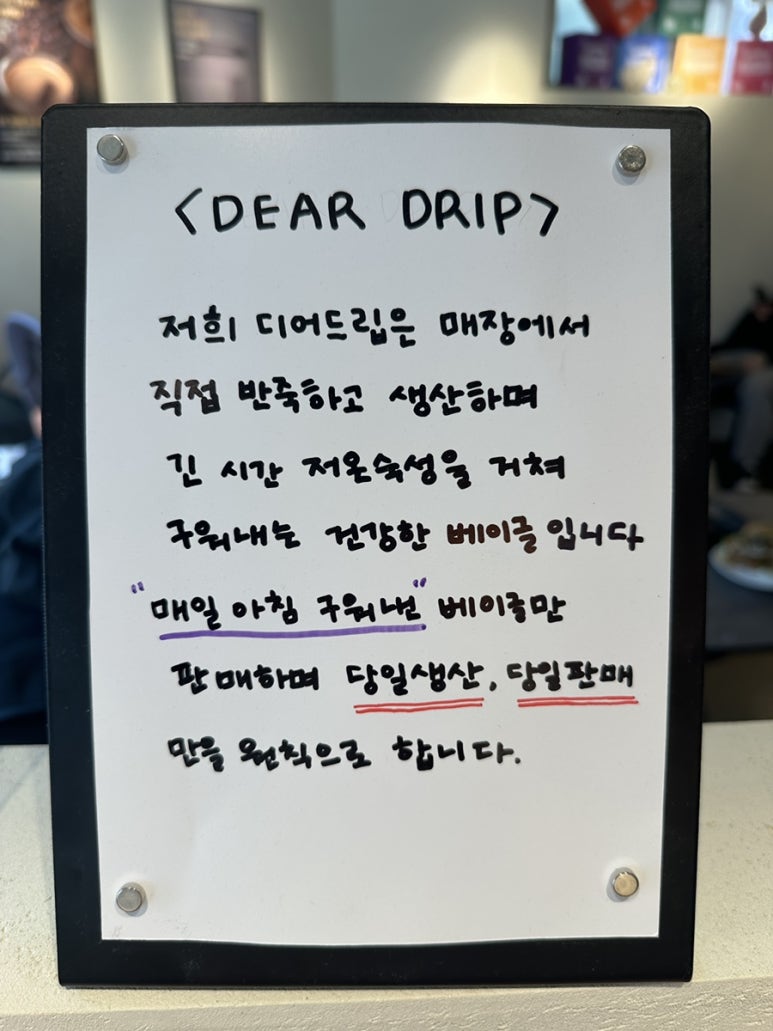 <DEAR DRIP>
저희 디어드립은 매장에서
직접 반죽하고 생산하며
긴 시간 저온숙성을 거쳐
구워내는 건강한 베이글입니다
"매일 아침 구워낸" 베이글만
판매하며 당일생산, 당일판매
만을 원칙으로 합니다.